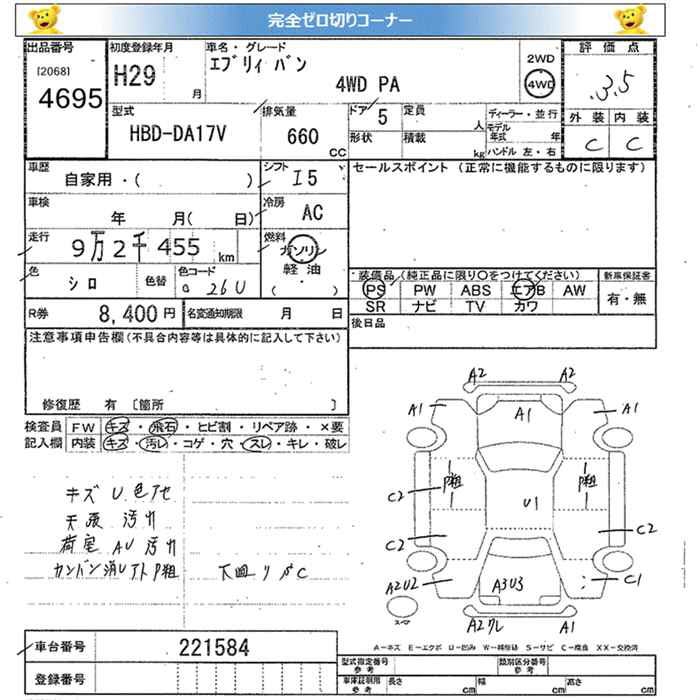 完全ゼロ切りコーナー
出品番号 初度登録年月 車名・グレード 評価点
[2068]
4695
H29 月
エブリィ バン
4WD PA
2WD
4WD
3.5
型式 排気量 ドア 定員 ディーラー・並行
HBD-DA17V 660 CC 5 人
モデル年式 年
形状 積載 kg ハンドル 左・右
外装 内装
C C
車歴 シフト セールスポイント (正常に機能するものに限ります)
自家用・( ) I5
車検 冷房
年 月( 日) AC
走行 燃料
9万2千455 km ガソリン・軽油
( )
色 色替 色コード
シロ 26U
装備品 (純正品に限り○をつけてください) 新車保証書
PS PW ABS エアB AW 有・無
SR ナビ TV カワ
R券 8,400円 名変通知期限 月 日
後日品
注意事項申告欄(不具合内容等は具体的に記入して下さい)
修復歴 有 〔箇所 〕
検査員 FW キズ・飛石・ヒビ割・リペア跡・×要
記入欄 内装 キズ・汚レ・コゲ・穴・スレ・キレ・破レ
キズ U 色アセ
天張 汚れ
荷室 AU 汚れ
カンバン消しアトP粗 下回りサビC
A2 A2
A1 A1 A1
P粗 P粗
C2 U1 C2
C2
A2U2 A3U3 C1
スペア
A2ワレ A1
A－キズ E－エクボ U－凹み W－補修跡 S－サビ C－腐食 XX－交換済
車台番号 221584
登録番号
型式指定番号 参考 類別区分番号 参考
車庫証明用 参考 長さ cm 幅 cm 高さ cm